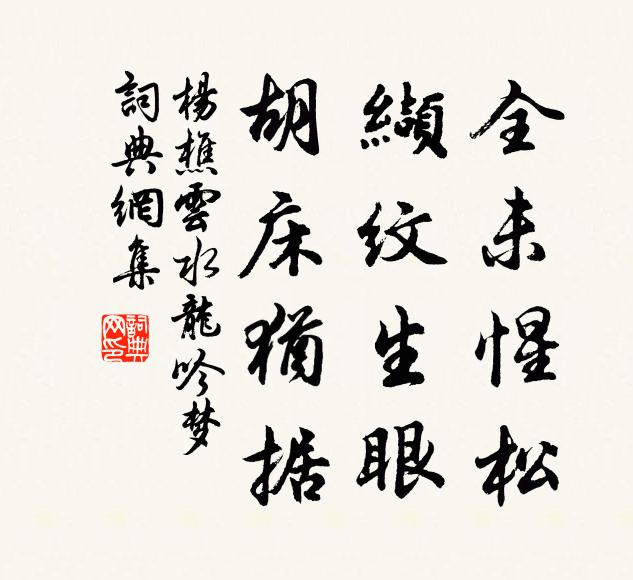 全未惺松
纈紋生眼
胡床猶据
楊樵雲水龍吟梦
詞典網集
詞典
网印